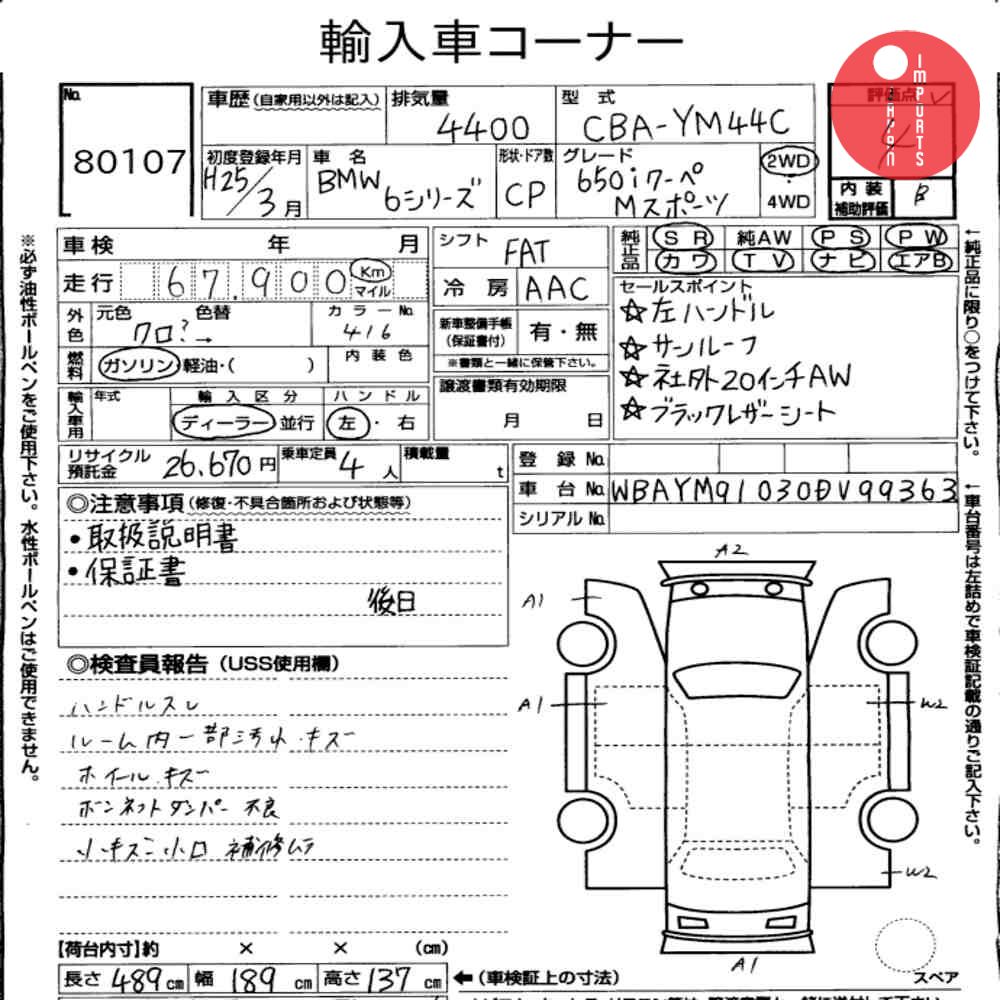 輸入車コーナー
JAPAN IMPORTS
No. 80107
車歴 (自家用以外は記入)
排気量 4400
型式 CBA-YM44C
評価点 4
初度登録年月 H25/3月
車名 BMW 6シリーズ
形状・ドア数 CP
グレード 650iクーペ Mスポーツ
2WD・4WD
内装補助評価 B
車検 年 月
走行 67.900 Km マイル
シフト FAT
冷房 AAC
純正品 SR 純AW PS PW
カワ TV ナビ エアB
外色 元色 クロ? → 色替 カラーNo. 416
燃料 ガソリン・軽油・( ) 内装色
新車整備手帳(保証書付) 有・無
※書類と一緒に保管下さい。
セールスポイント
☆左ハンドル
☆サンルーフ
☆社外20インチAW
☆ブラックレザーシート
輸入車用 年式 輸入区分 ディーラー 並行 ハンドル 左・右
譲渡書類有効期限 月 日
リサイクル預託金 26.670円 乗車定員 4人 積載量 t
登録No.
車台No. WBAYM91030DV99363
シリアルNo.
◎注意事項(修復・不具合箇所および状態等)
・取扱説明書
・保証書
後日
◎検査員報告(USS使用欄)
ハンドルスレ
ルーム内一部汚れ・キズ
ホイールキズ
ボンネットダンパー不良
小キズ小凹 補修ムラ
A2
A1
A1 W2
W2
A1
スペア
【荷台内寸】約 × × (cm)
長さ 489cm 幅 189cm 高さ 137cm ←(車検証上の寸法)
※必ず油性ボールペンをご使用下さい。水性ボールペンはご使用できません。
←純正品に限り○をつけて下さい。
←車台番号は左詰めで車検証記載の通りご記入下さい。